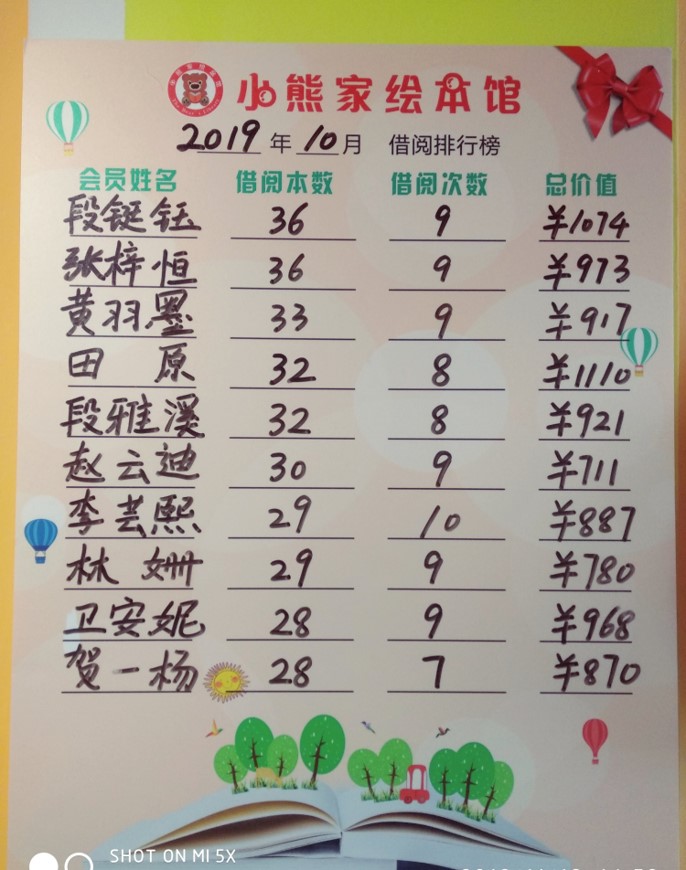 小熊家绘本馆
2019年10月 借阅排行榜
会员姓名 借阅本数 借阅次数 总价值
段铤钰 36 9 ¥1074
张梓恒 36 9 ¥973
黄羽墨 33 9 ¥917
田原 32 8 ¥1110
段雅溪 32 8 ¥921
赵云迪 30 9 ¥711
李芸熙 29 10 ¥887
林姗 29 9 ¥780
卫安妮 28 9 ¥968
贺一杨 28 7 ¥870
SHOT ON MI 5X